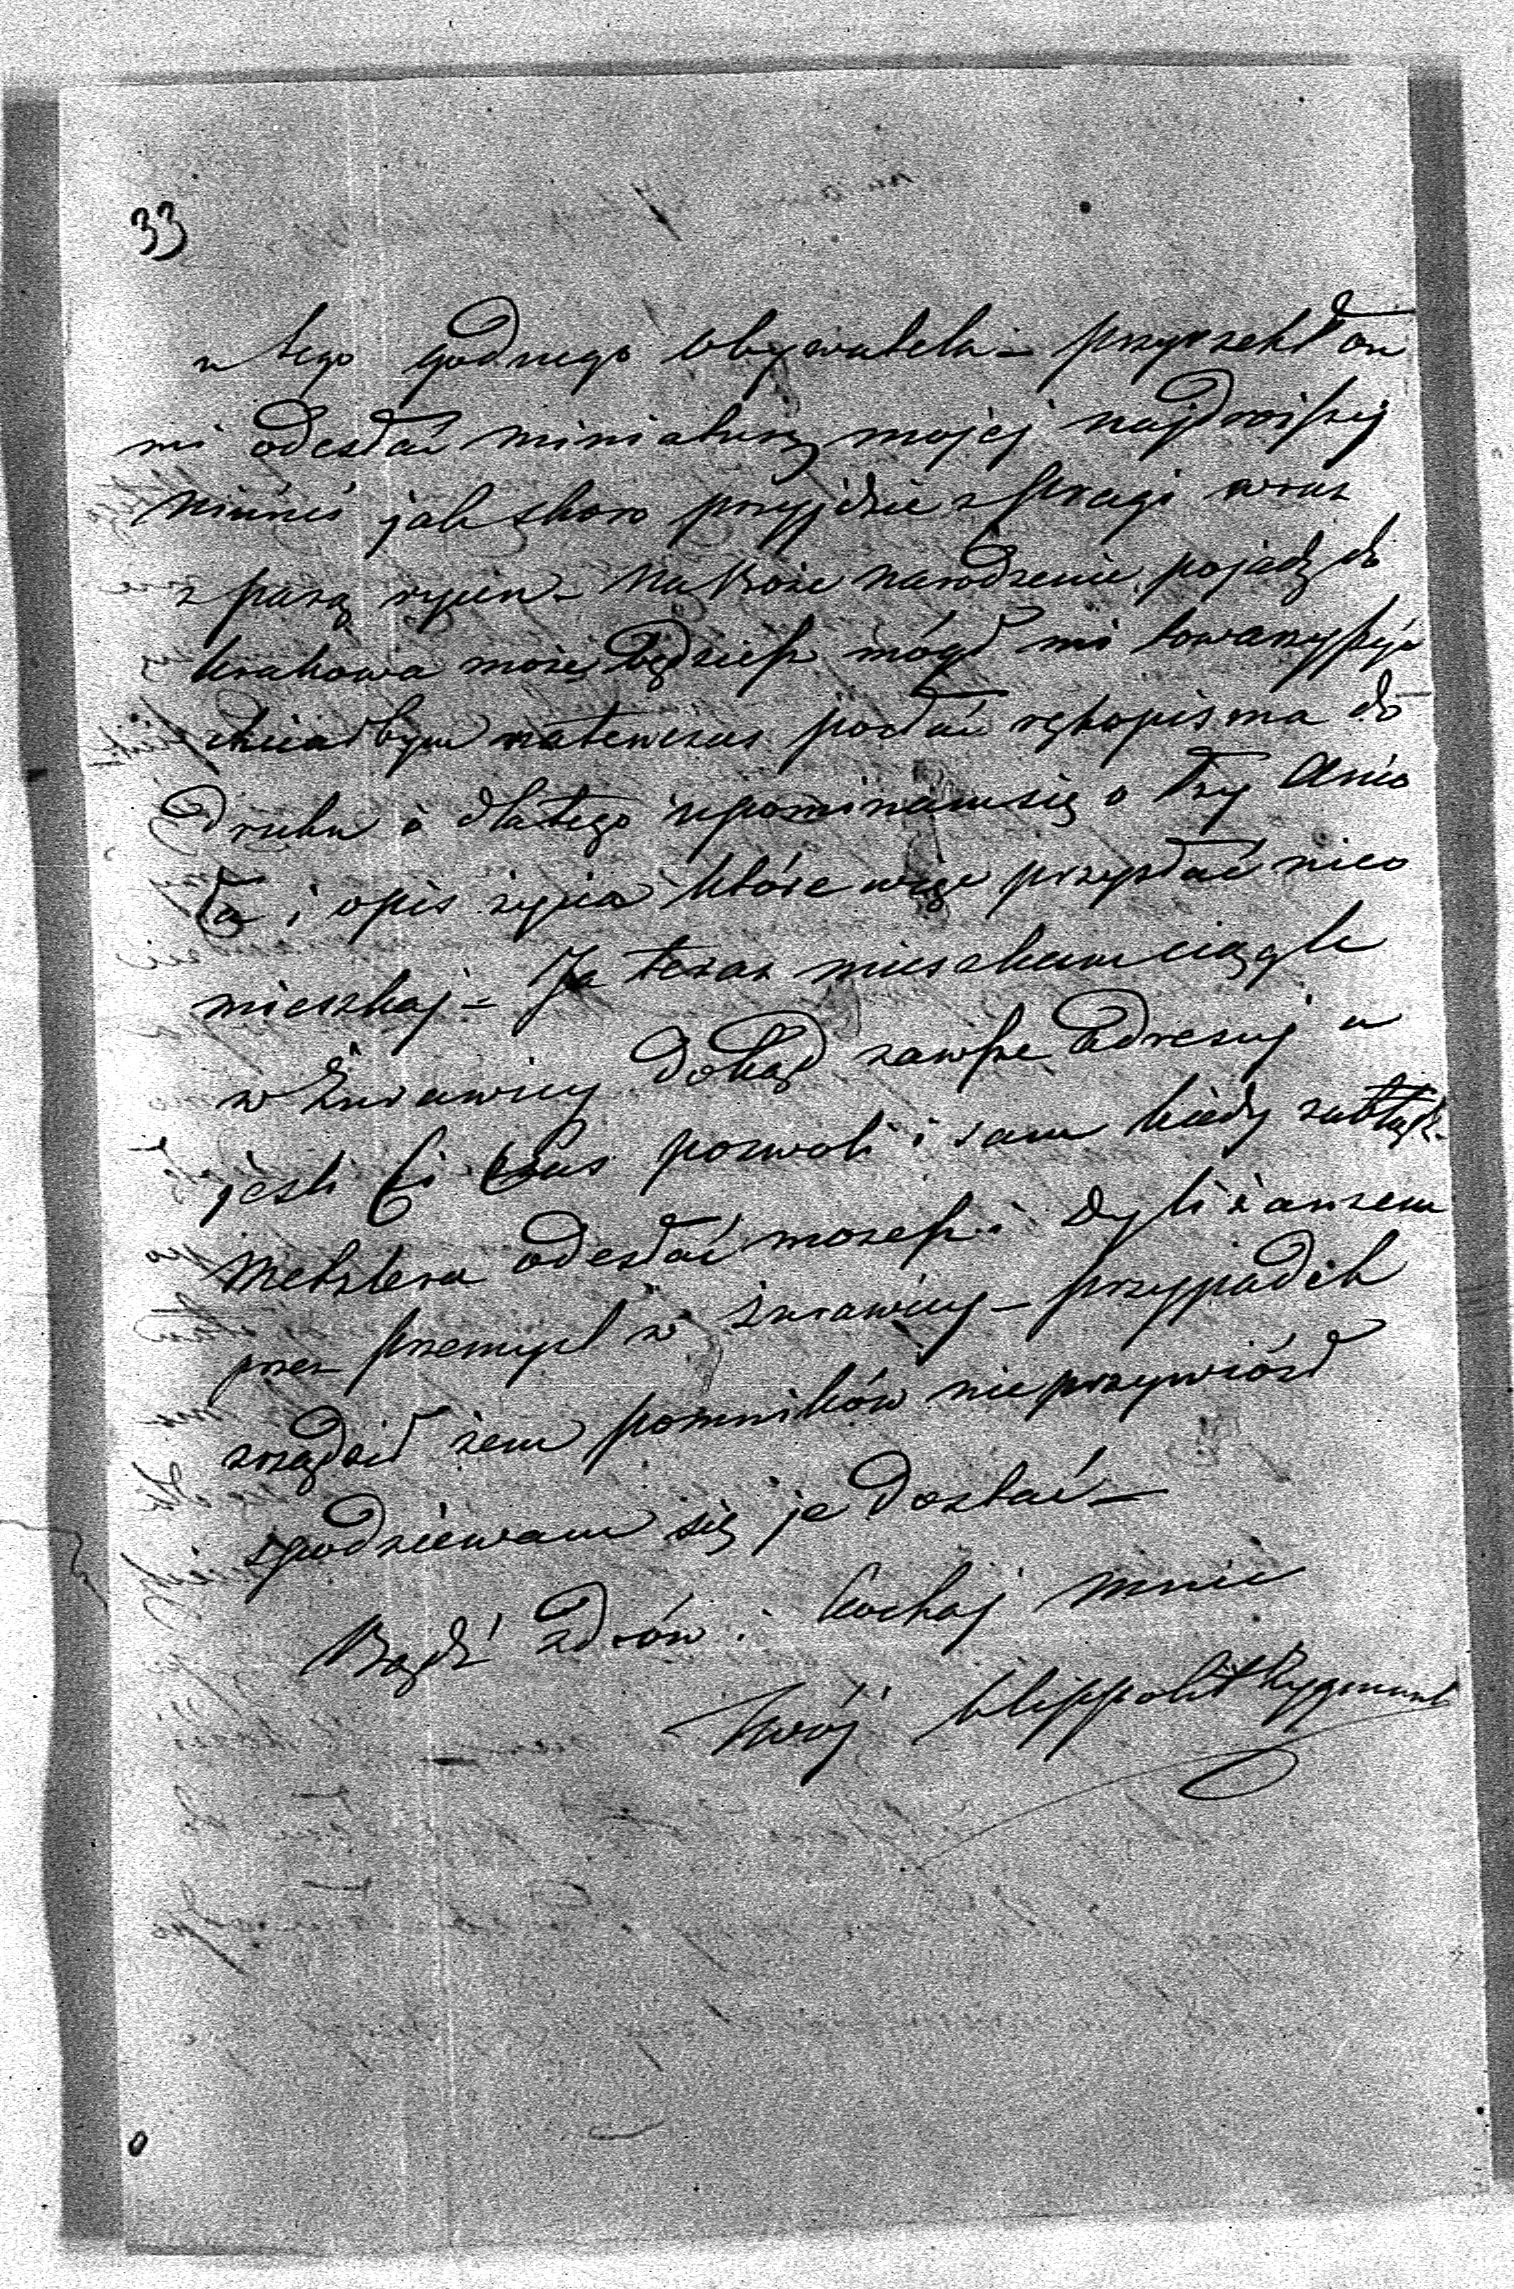 33
u tego godnego obywatela – przyrzekł on
mi odesłać miniaturę mojej najdroższej
Niuniś jak skoro przyjdzie z Pragi wraz
z parą rycin – Na Boże narodzenie pojadę do
Krakowa może będziesz mógł mi towarzyszyć
chciałbym natenczas podać rękopisma do
druku i dlatego upominam się o Trzy Anio
ła i opis życia które więc przysłać nieo
mieszkaj – Ja teraz mieszkam ciągle
w Żurawicy dokąd zawsze adresuj a
jeśli Ci czas pozwoli i sam kiedy zabłądź.
Metzlera odesłać możesz i dyliżansem
przez Przemyśl w Żurawicy – przypadek
zrządził żem pomników nie przywiózł
spodziewam się je dostać –
Bądź zdrów. Kochaj mnie
Twój Hippolit Zygmunt